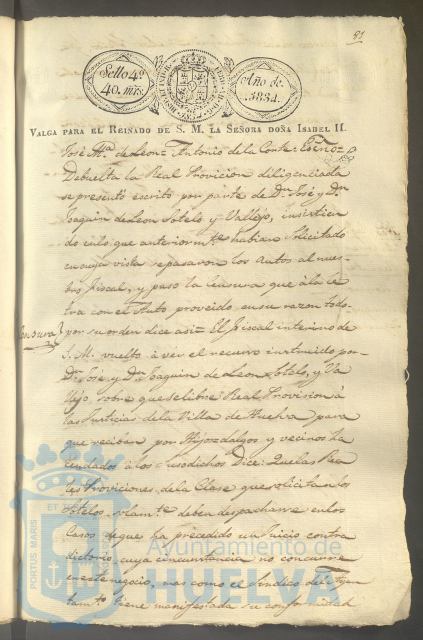 81
Sello 4º
40. mrs
Año de
1834.
VALGA PARA EL REINADO DE S. M. LA SEÑORA DOÑA ISABEL II.
José Mª de Leon = Antonio de la Corte = Esno =
Debuelta la Real Provicion diligenciada
se presentó escrito por parte de Dn José y Dn
Joaquin de Leon Sotelo y Vallejo, insistien
do en lo que anteriormte habian Solicitado
en cuya vista se pasaron los Autos al nues-
tro fiscal, y puso la Censura que à la le
tra con el Auto proveido en su razon todo
por su orden dice asi = El fiscal interino de
Censura
S. M. vuelto à ver el recurso instruido por
Dn José y Dn Joaquin de Leon Sotelo, y Va
llejo, sobre que se libre Real Provision à
las Justicias de la Villa de Huelva para
que reciban por Hijosdalgos y vecinos ha
cendados à los susodichos Dice: Que las Rea
les Proviciones de la Clase que solicitan los
Sotelos, solamte deben despacharse en los
Casos de que ha precedido un Juicio contra
dictorio, cuya circunstancia no concurre
en este negocio, mas como el Sindico del Ayun
tamto tiene manifestada su conformidad
PORTUS MARIS ET
Ayuntamiento de
HUELVA